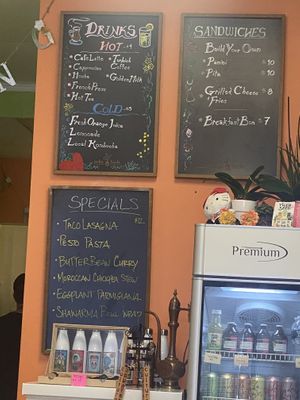 DRINKS
HOT
Cafe Latte
Cappuccino
Mocha
French Press
Hot Tea
Turkish
Coffee
Golden Milk
COLD
Fresh Orange Juice
Lemonade
Local Kombucha
SANDWICHES
Build Your Own
Panini 10
Pita 10
Grilled Cheese 8
+Fries
Breakfast Bun 7
SPECIALS
TACO LASAGNA
PESTO PASTA
BUTTER BEAN CURRY
MOROCCAN CHICKPEA STEW
EGGPLANT PARMIGIANA
SHAWARMA BOWL WRAP
Premium